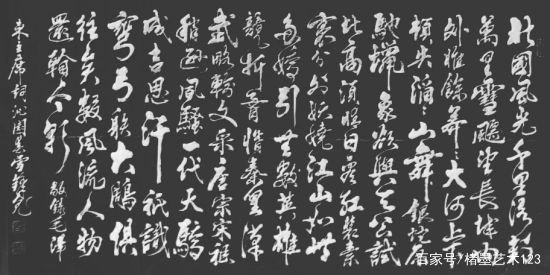 北國風光千里冰封
萬里雪飄望長城內
外惟餘莽大河上下
頓失滔山舞銀蛇原
馳蠟象欲與天公試
比高須晴日看紅裝素
裹分外妖嬈江山如此
多嬌引無數英雄
競折腰惜秦皇漢
武略輸文采唐宗宋祖
稍遜風騷一代天驕
成吉思汗祇識
彎弓射大鵰俱
往矣數風流人物
還看今朝 敬錄毛澤
东主席詞沁園春雪
百家号/楮墨艺术123